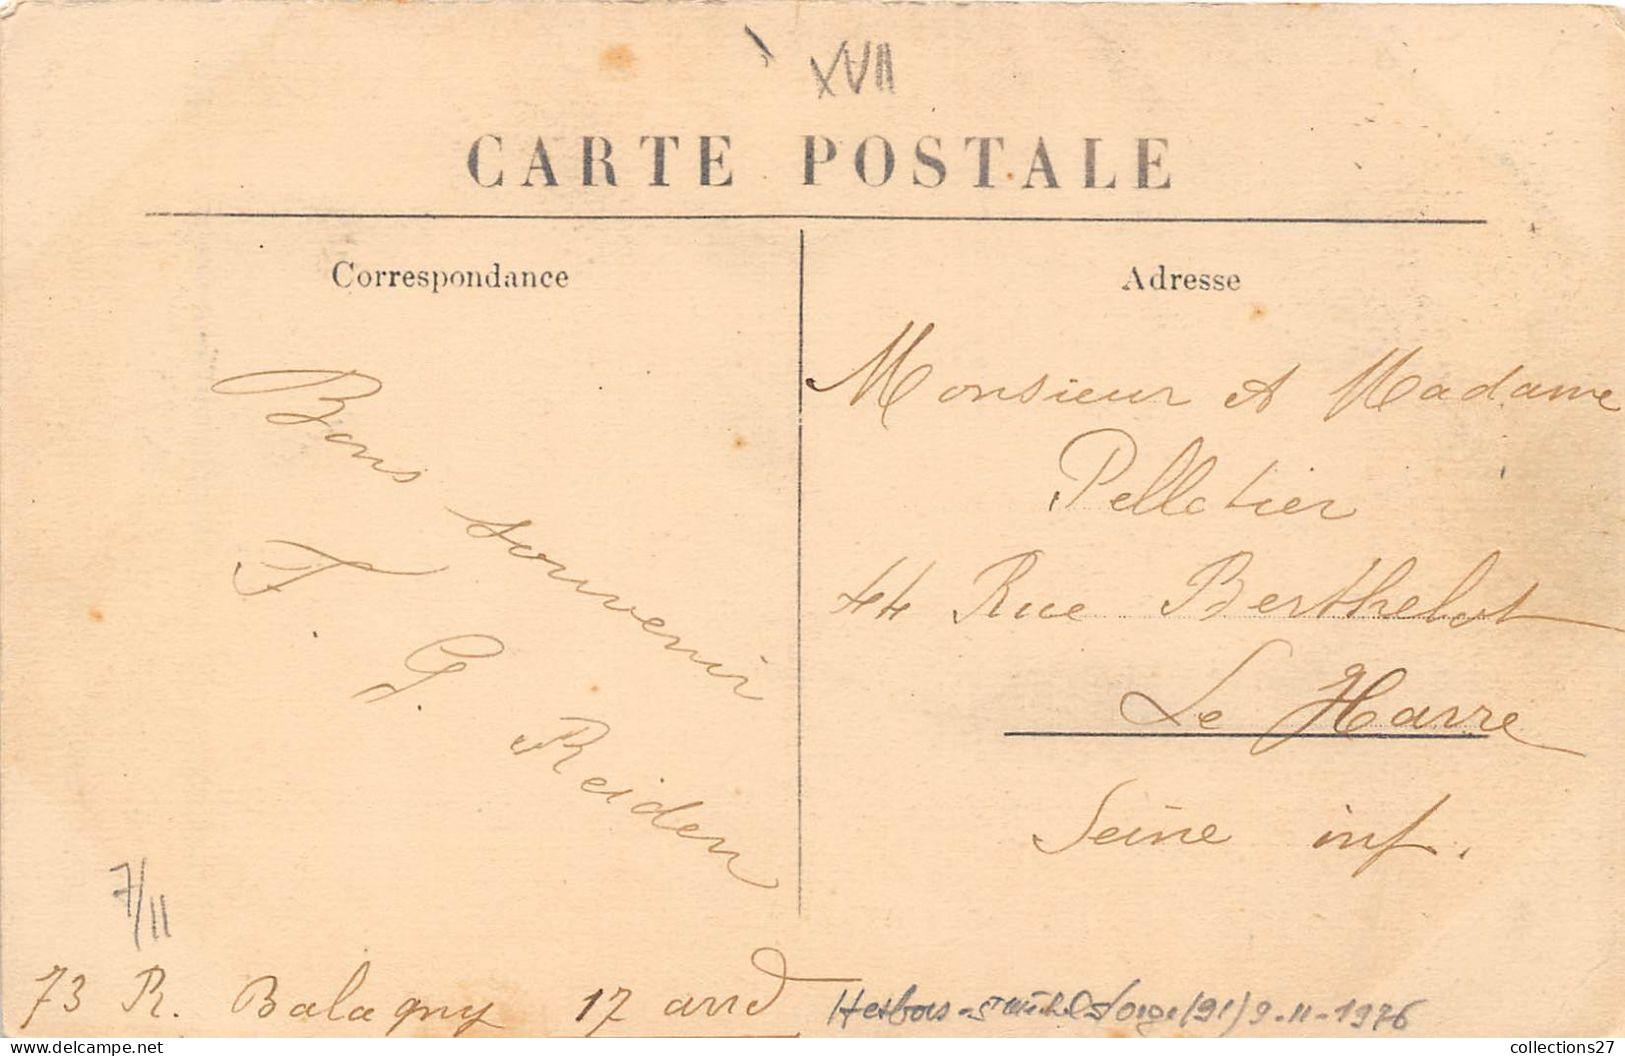 XVII
CARTE POSTALE
Correspondance
Bons souvenir
F. G. Reiden
7/11
73 R. Balagny 17 arrd
Adresse
Monsieur et Madame
Pelletier
44 Rue Berthelot
Le Havre
Seine inf.
St Michel s/orge (91) 9-11-1976
collections27